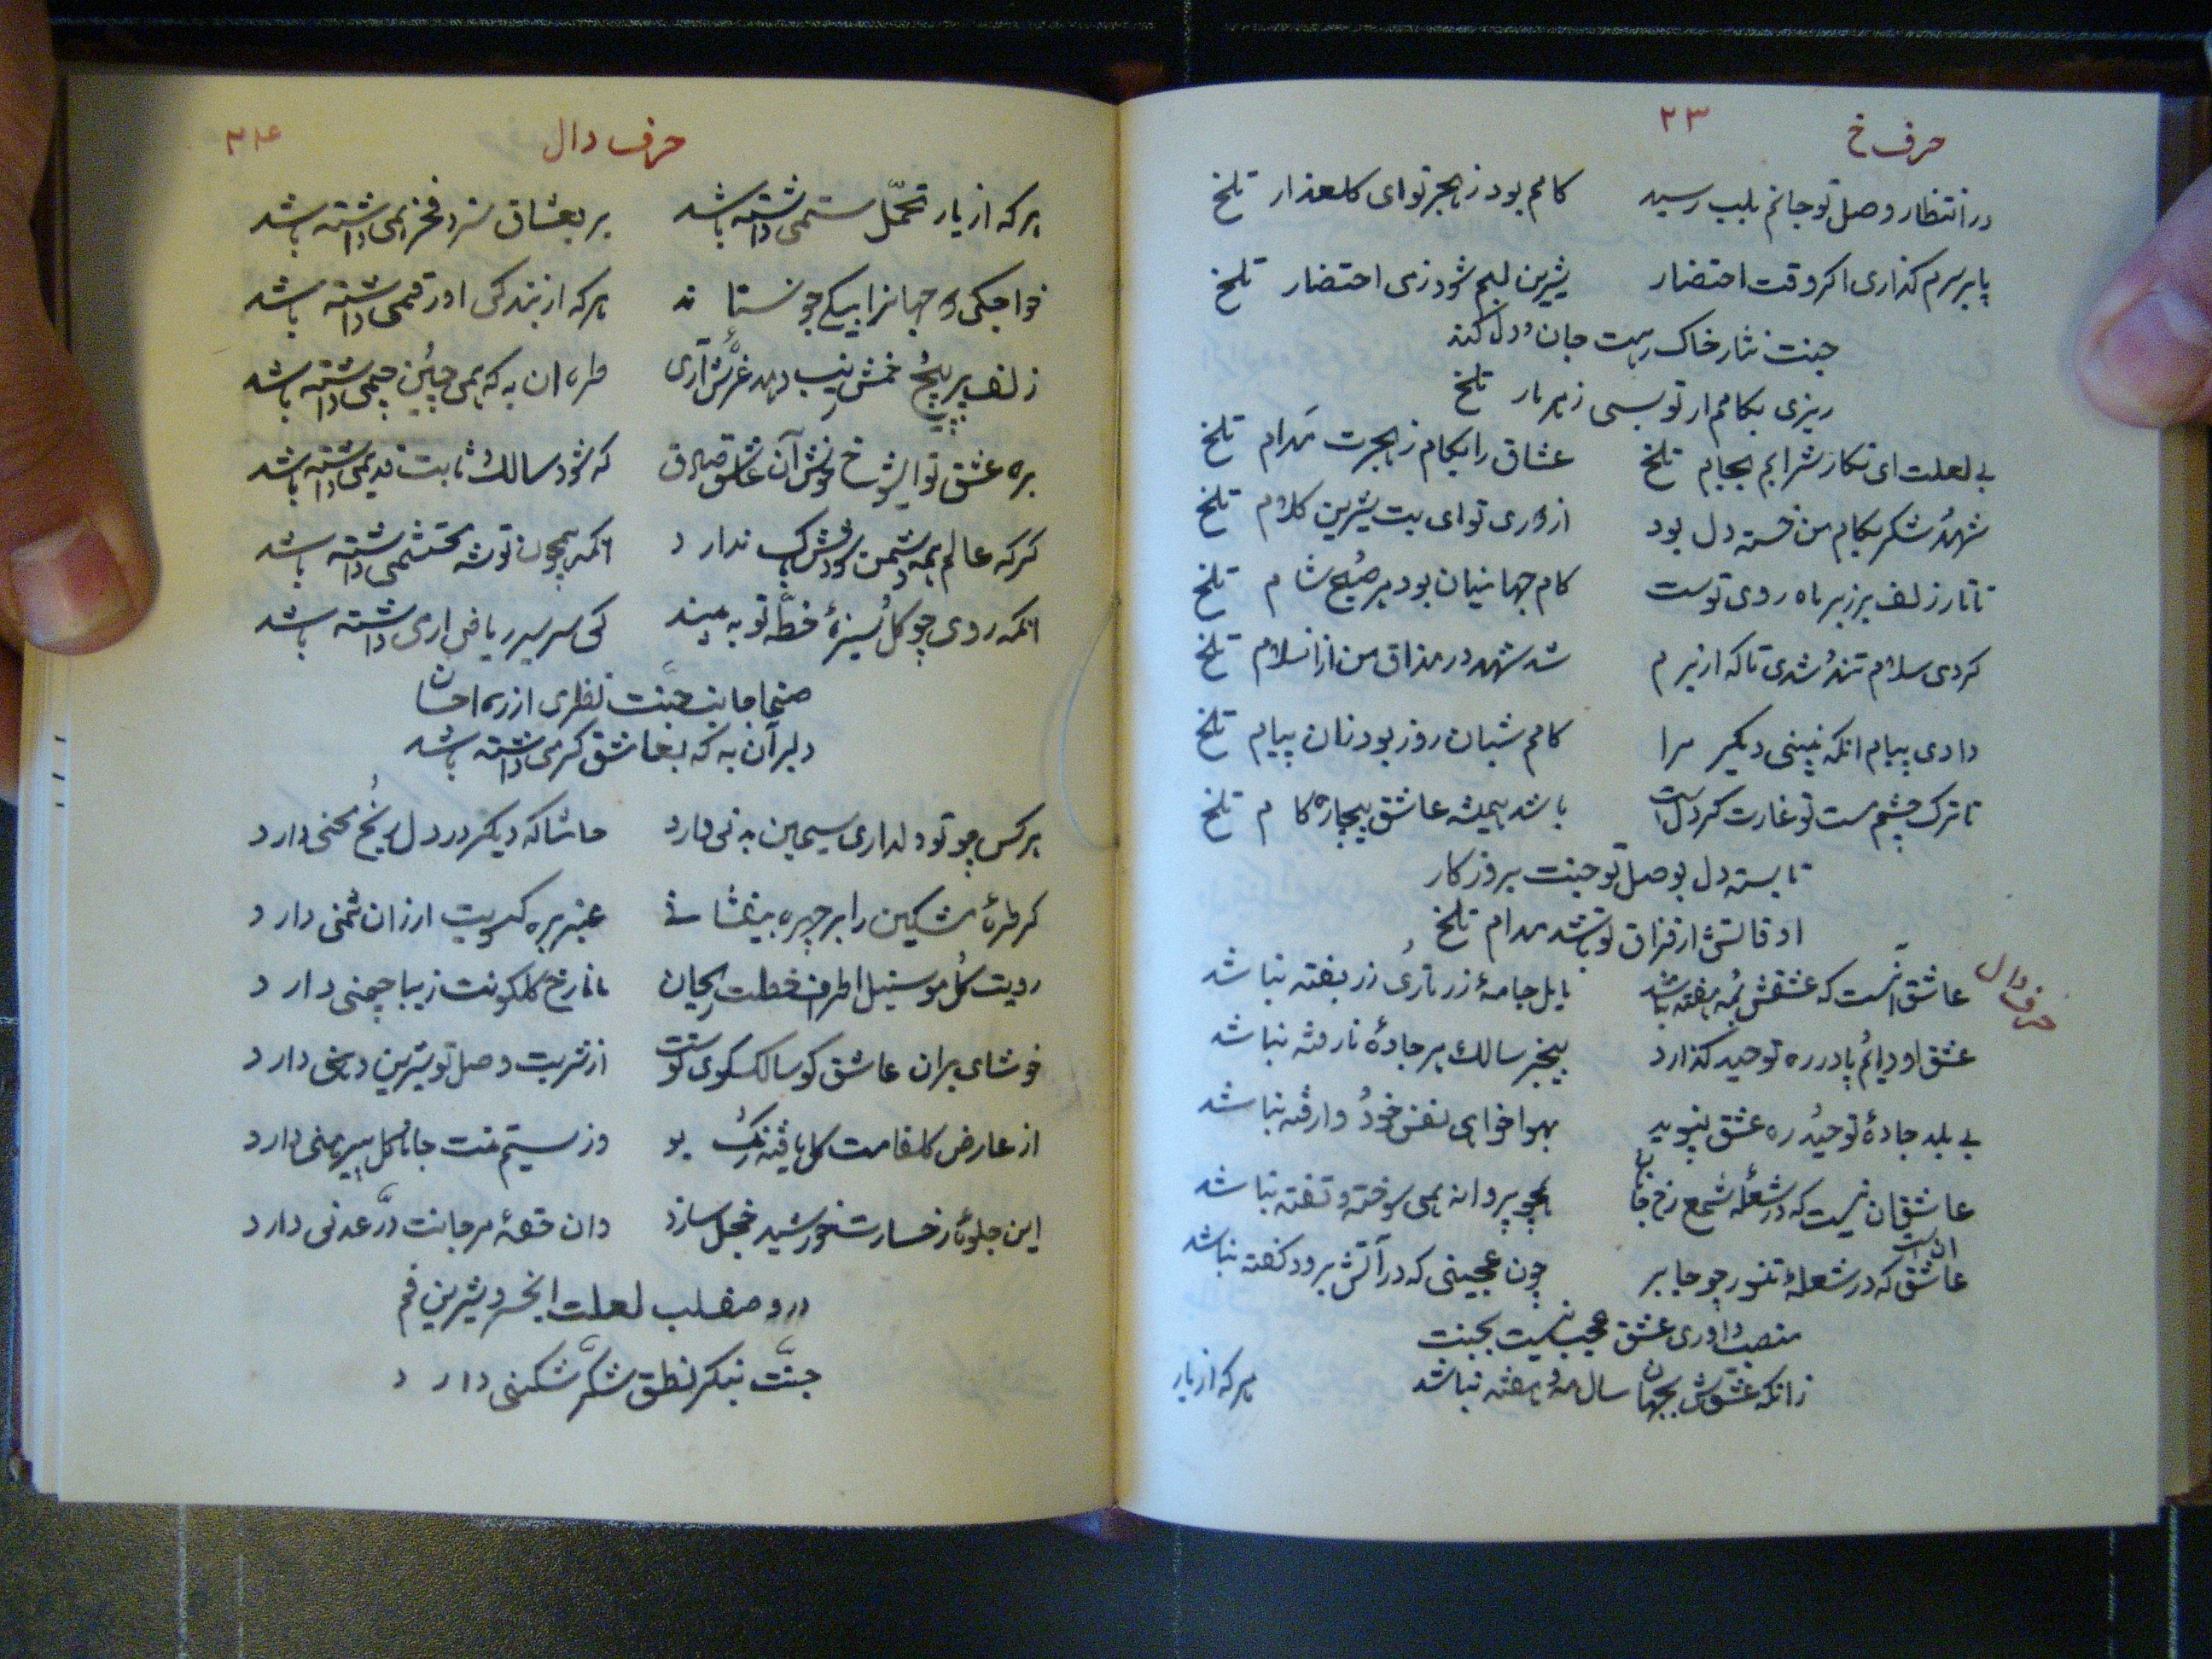 حرف خ ۲۳
در انتظار وصل تو جانم بلب رسید کامم بود ز هجر تو ای کلعذار تلخ
پا بر سرم کذاری اکر وقت احتضار شیرین لبم شود زمی احتضار تلخ
جنت نثار خاک رهت جان و دل کند
ریزی بکامم ار تو بسی زهر مار تلخ
بی لعلت ای نکار شرابم بجام تلخ عشاق را بکام ز هجرت مدام تلخ
شهد شکر بکام من خسته دل بود از دوری تو ای بت شیرین کلام تلخ
تا تار زلف بر زبر ماه روی توست کام جهانیان بود هر صبح شام تلخ
کردی سلام تند شدی تا که از برم شد شهد در مذاق من از انسلام تلخ
دادی پیام انکه نبینی دیکر مرا کامم شبان روز بود زان پیام تلخ
تا ترک چشم مست تو غارت کر دل است باشد همیشه عاشق بیچاره کام تلخ
تا بسته دل بوصل تو جنت بروزکار
اوقاتش از فراق تو باشد مدام تلخ
حرف دال
عاشق آنست که عشقش همه هفته نباشد مایل جامهٔ زر تاری زر بفته نباشد
عشق او دائم پا در ره توحید کذارد بیخبر سالک هر جادهٔ نارفته نباشد
بی بلد جادهٔ توحید ره عشق نپوید بهوا خواهی نفس خود وارفته نباشد
عاشق ان نیست که در شعلهٔ شمع رخ جانان همچو پروانه همی سوخته و تفته نباشد
عاشق ان است که در شعلهٔ تنور چو جا بر چون عجینی که در آتش برود کفته نباشد
منصب داوری عشق عجب نیست بجنت
زانکه عشقش بجهان سال مه و هفته نباشد
هر که از یار
حرف دال ۲۴
هر که از یار تحمل ستمی داشته باشد بر بعشاق سزد فخر همی داشته باشد
خواجکی دو جهانرا بیکی جو نستاند هر که از بندکی او رقمی داشته باشد
زلف پر پیچ خمش زیب دهد غرش آری طره ان به که همی چین چمی داشته باشد
بره عشق تو ایشوخ خوش آن عاشق صادق که شود سالک ثابت قدمی داشته باشد
کر که عالم همه دشمن شودش باک ندارد انکه همچون تو شه محتشمی داشته باشد
انکه روی چو کل سبزهٔ خطه تو به بیند کی سر سیر ریاض ارمی داشته باشد
صنما جانب جنت نظری از ره احسان
دلبر آن به که بعاشق کرمی داشته باشد
هر کس چو تو دلداری سیمین بدنی دارد حاشا که دیکر در دل رنج محنی دارد
کر طرهٔ مشکین را بر چهره بیفشانی عنبر بره کویت ارزان ثمنی دارد
رویت کل مو سنبل اطراف خطت ریحان مانا رخ کلکونت زیبا چمنی دارد
خوشای بران عاشق کو سالک کوی توست از شربت وصل تو شیرین دهنی دارد
از عارض کلفامت کل یافته رنک بو وز سیم تنت جانا کل پیرهنی دارد
این جلوهٔ رخسارت خورشید خجل سازد وان حقهٔ مرجانت در عدنی دارد
در وصف لب لعلت ایخسرو شیرین فم
جنت بنکر نطق شکر شکنی دارد